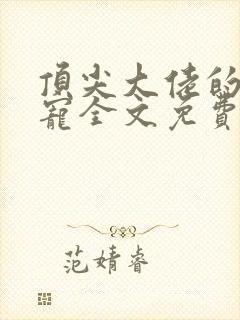 頂尖大佬的
寵全文免費
范婧睿